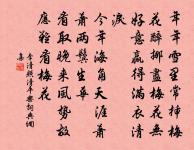 年年雪里常插梅
花醉挪盡梅花無
好意贏得滿衣清
淚
今年海角天涯蕭
蕭兩鬢生華
看取晚來風勢故
應難看梅花
李清照清平樂詞典網
集